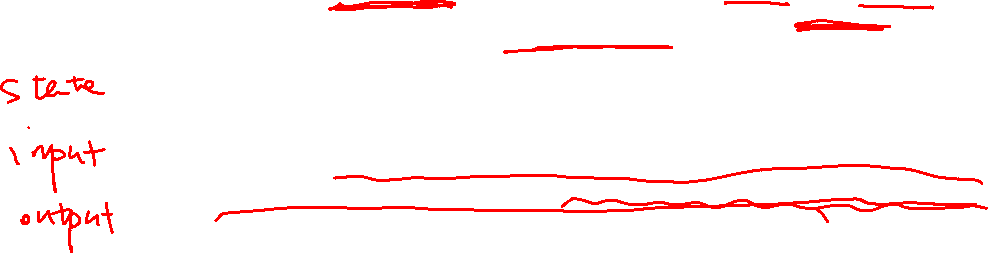 state
input
output